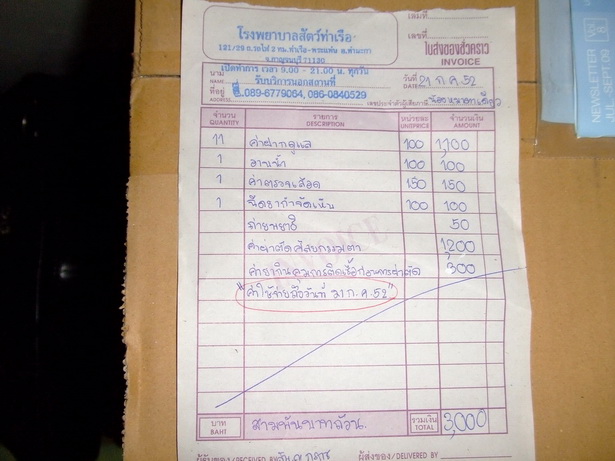 เล่มที่
เลขที่
โรงพยาบาลสัตว์ท่าเรือ
ใบส่งของชั่วคราว
INVOICE
จ.กาญจนบุรี 71120
เปิดทำการ เวลา 9.00 - 21.00 น. ทุกวัน
รับบริการนอกสถานที่
089-6779064, 086-0840529
นาม
NAME
ที่อยู่
ADDRESS
วันที่ 21 ก.ค. 52
DATE
เลขประจำตัวผู้เสียภาษี
จำนวน รายการ หน่วยละ จำนวนเงิน
QUANTITY DESCRIPTION UNITPRICE AMOUNT
11 ค่าฝากดูแล 100 1,100
1 อาบน้ำ 100 100
1 ค่าตรวจเลือด 150 150
1 ฉีดยากำจัดเห็บ 100 100
ถ่ายพยาธิ 50
ค่าผ่าตัดศัลยกรรมตา 1200
300
"ค่าใช้จ่ายถึงวันที่ 21 ก.ค. 52"
บาท สามพันบาทถ้วน. รวมเงิน 3,000
BAHT TOTAL
ผู้รับของ/RECEIVED BY ผู้ส่งของ/DELIVERED BY
NEWSLETTER